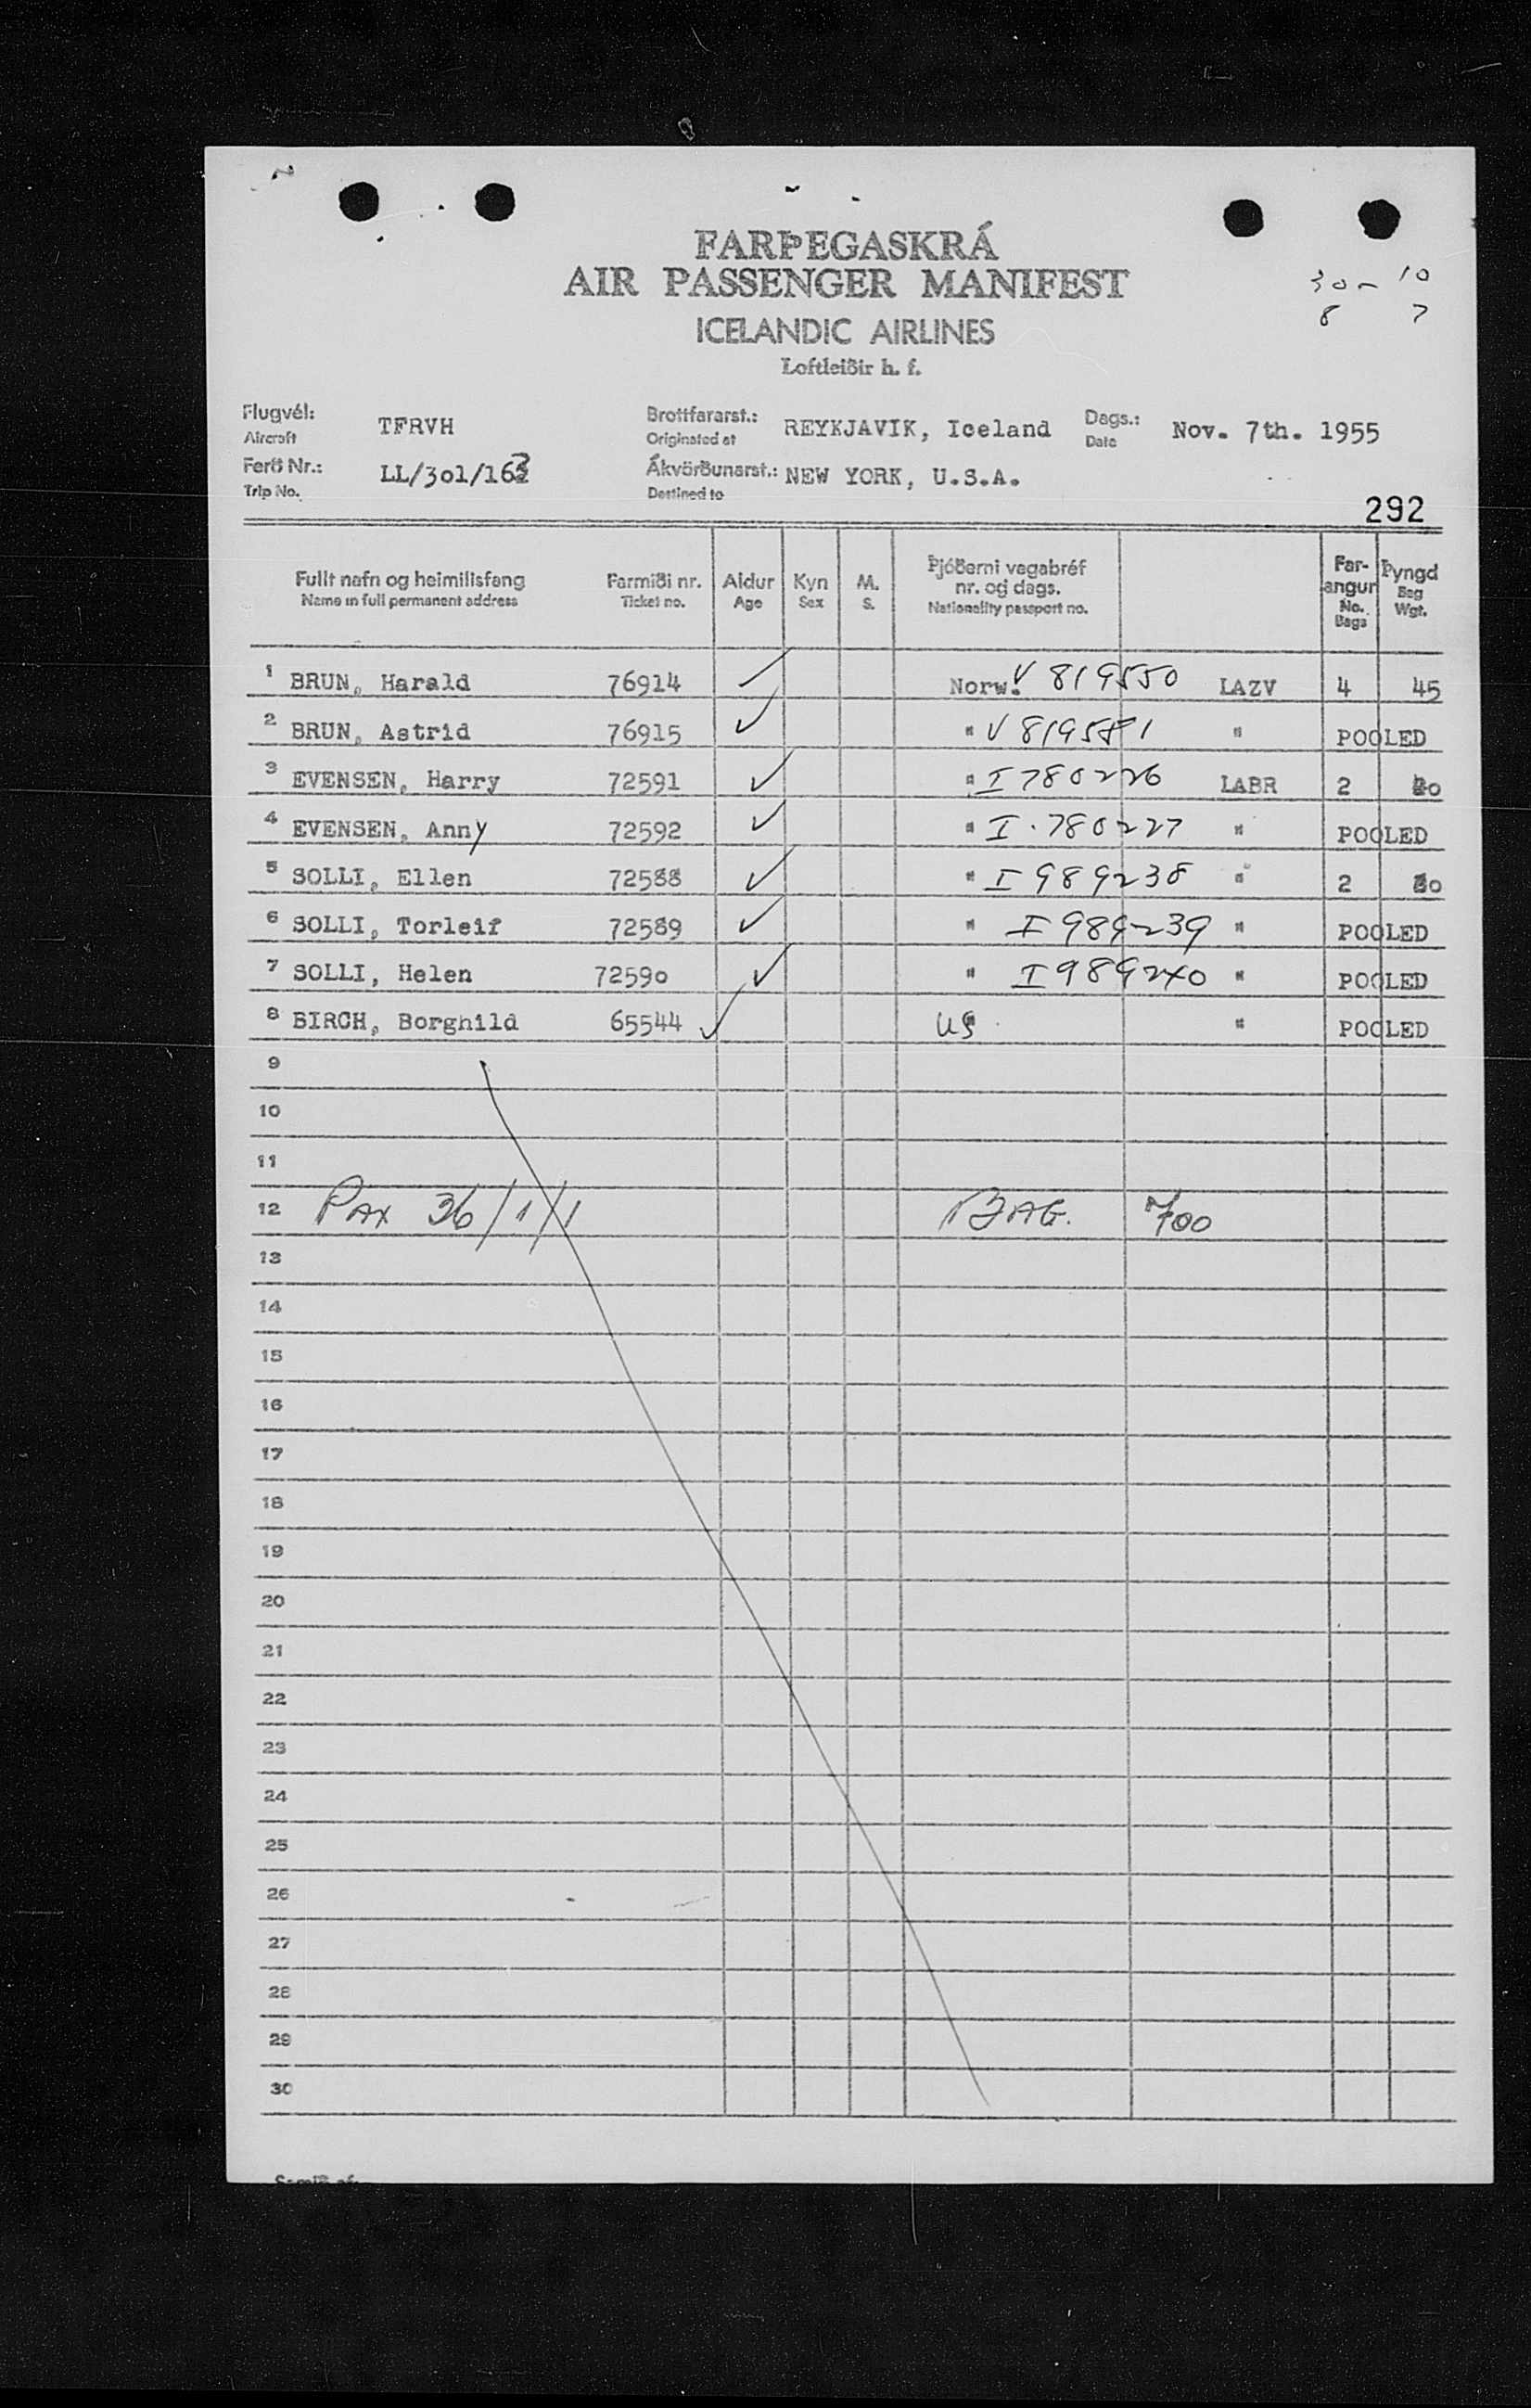 FARÞEGASKRÁ
AIR PASSENGER MANIFEST
ICELANDIC AIRLINES
Loftleiðir h. f.
30 - 10
8 7
Flugvél: TFRVH Brottfararst.: REYKJAVIK, Iceland Dags.: Nov. 7th. 1955
Aircraft Originated at Date
Ferð Nr.: LL/301/163 Ákvörðunarst.: NEW YORK, U.S.A.
Trip No. Destined to
292
Fullt nafn og heimilisfang Farmiði nr. Aldur Kyn M. Þjóðerni vegabréf nr. og dags. Farangur Þyngd
Name in full permanent address Ticket no. Age Sex S. Nationality passport no. No. Bags Bag Wgt.
1 BRUN, Harald 76914 ✓ Norw. V 819550 LAZV 4 45
2 BRUN, Astrid 76915 ✓ " V 819581 " POOLED
3 EVENSEN, Harry 72591 ✓ " I 780226 LABR 2 40
4 EVENSEN, Anny 72592 ✓ " I 780227 " POOLED
5 SOLLI, Ellen 72588 ✓ " I 989238 " 2
6 SOLLI, Torleif 72589 ✓ " I 989239 " POOLED
7 SOLLI, Helen 72590 ✓ " I 989240 " POOLED
8 BIRCH, Borghild 65544 ✓ US " POOLED
9
10
11
12 PAX 36/1/1 BAG. 700
13
14
15
16
17
18
19
20
21
22
23
24
25
26
27
28
29
30